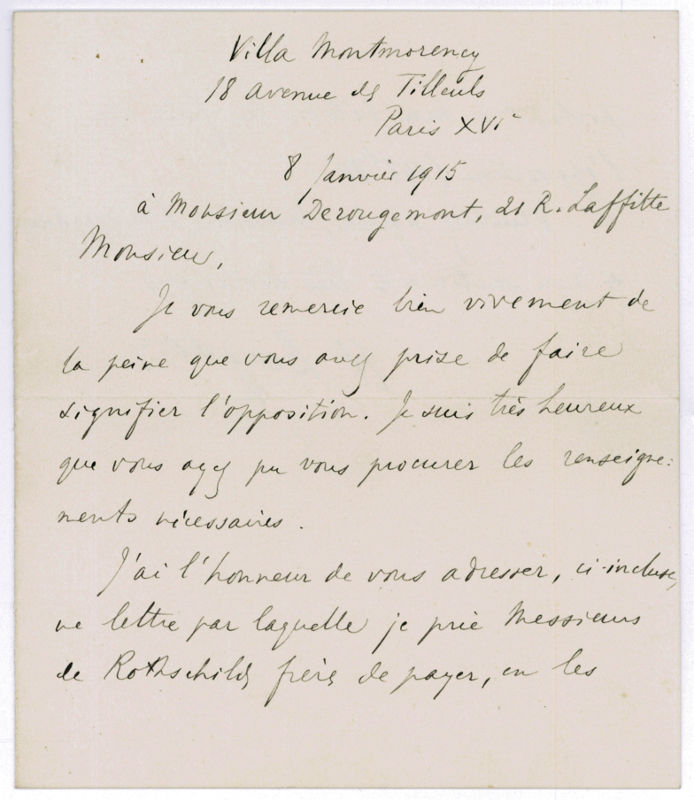 Villa Montmorency
18 avenue des Tilleuls
Paris XVIe
8 Janvier 1915
à Monsieur Derougemont, 21 R. Laffitte
Monsieur,
Je vous remercie bien vivement de
la peine que vous avez prise de faire
signifier l'opposition. Je suis très heureux
que vous ayez pu vous procurer les renseigne-
ments nécessaires.
J'ai l'honneur de vous adresser, ci-incluse,
une lettre par laquelle je prie Messieurs
de Rothschilds frères de payer, en les